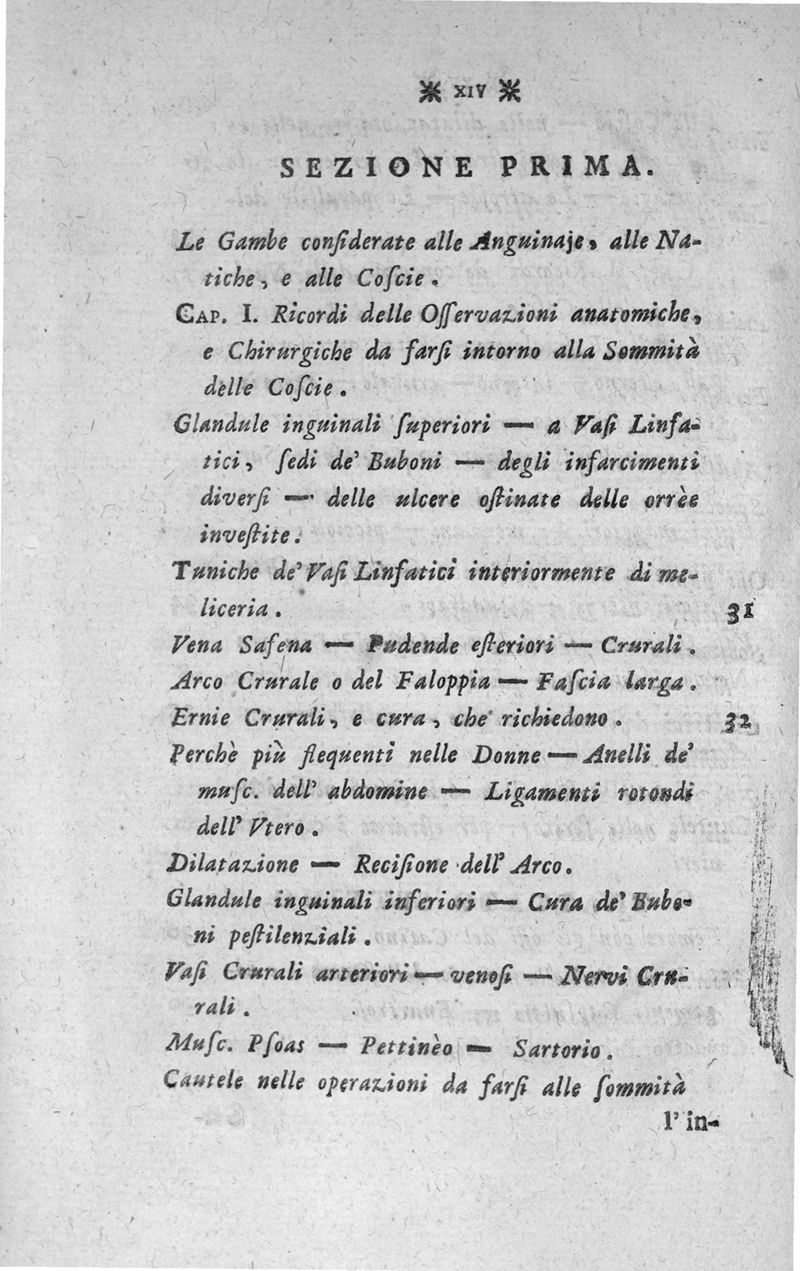 ⁕ XIV ⁕
SEZIONE PRIMA.
Le Gambe conſiderate alle Anguinaje, alle Na-
tiche, e alle Coſcie.
CAP. I. Ricordi delle Oſſervazioni anatomiche,
e Chirurgiche da farſi intorno alla Sommità
delle Coſcie.
Glandule inguinali ſuperiori — a Vaſi Linfa-
tici, ſedi de' Buboni — degli infarcimenti
diverſi — delle ulcere oſtinate delle orrèe
inveſtite.
Tuniche de' Vaſi Linfatici interiormente di me-
liceria. 31
Vena Safena — Pudende eſteriori — Crurali.
Arco Crurale o del Faloppia — Faſcia larga.
Ernie Crurali, e cura, che richiedono. 32
Perchè più flequenti nelle Donne — Anelli de'
muſc. dell' abdomine — Ligamenti rotondi
dell' Vtero.
Dilatazione — Reciſione dell' Arco.
Glandule inguinali inferiori — Cura de' Bubo-
ni peſtilenziali.
Vaſi Crurali arteriori — venoſi — Nervi Cru-
rali.
Muſc. Pſoas — Pettinèo — Sartorio.
Cautele nelle operazioni da farſi alle ſommità
l' in-